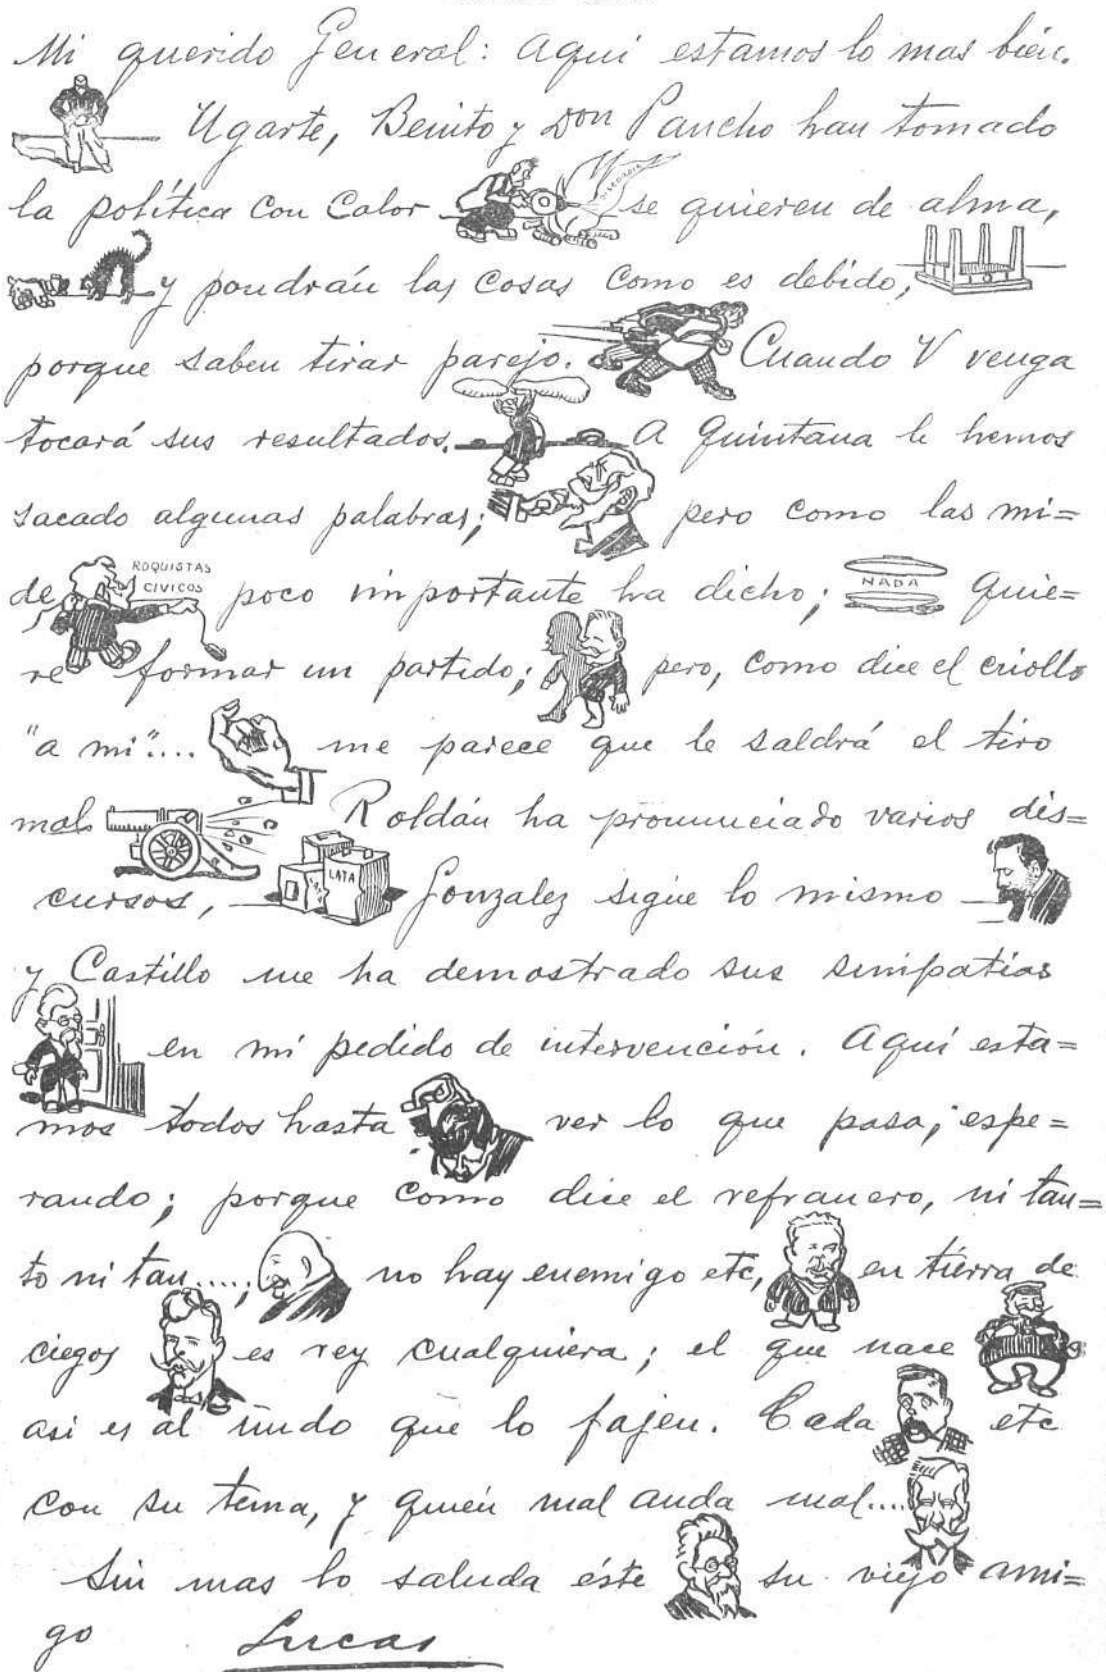 Mi querido General: Aqui estamos lo mas bien.
Ugarte, Benito y Don Pancho han tomado
la política con Calor DISCORDIA se quieren de alma,
y pondrán las cosas como es debido,
porque saben tirar parejo. Cuando V venga
tocará sus resultados. A Quintana le hemos
sacado algunas palabras; pero como las mi=
de ROQUISTAS CIVICOS poco importante ha dicho; NADA Quie=
re formar un partido; pero, como dice el criollo
"a mi".... me parece que le saldrá el tiro
mal. Roldán ha pronunciado varios dis=
cursos, LATA Gonzalez sigue lo mismo
y Castillo me ha demostrado sus simpatias
en mi pedido de intervención. Aquí esta=
mos todos hasta ver lo que pasa; espe=
rando; porque como dice el refranero, ni tan=
to ni tan....., no hay enemigo etc, en tierra de
ciegos es rey cualquiera; el que nace
asi es al ñudo que lo fajen. Cada etc
con su tema, y quién mal anda mal....
Sin mas lo saluda éste su viejo ami=
go Lucas